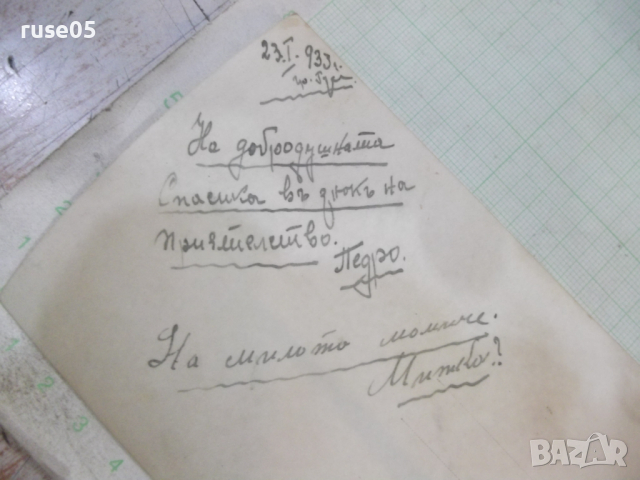 ruse05
23.I.933 г.
На добродушната
Спасика въ дюкъ на
приятелство.
Педро.
На милото момиче.
Митко?
BAZAR
bg